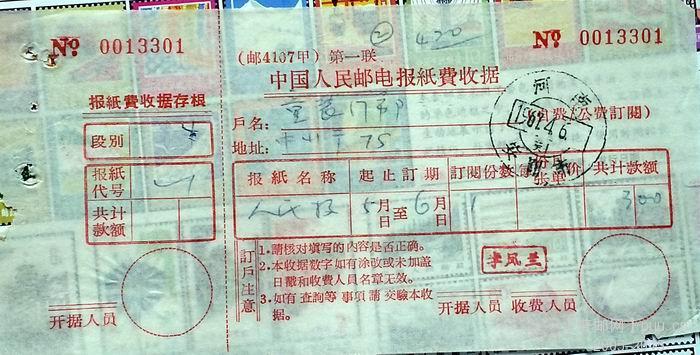 No 0013301
报紙費收据存根
段別
报紙代号
共计款额
开据人员
(邮4107甲) 第一联
② 420
No 0013301
中国人民邮电报紙費收据
戶名：
(公費訂閱)
地址： 75
报紙名称 起止訂期 訂閱份数 共计款额
人民 5月日至6月日 1 300
訂戶注意
1. 請核对填写的內容是否正确。
2. 本收据数字如有涂改或未加盖日戳和收費人員名章无效。
3. 如有查詢等事項請交驗本收据。
李凤兰
开据人员 收费人员